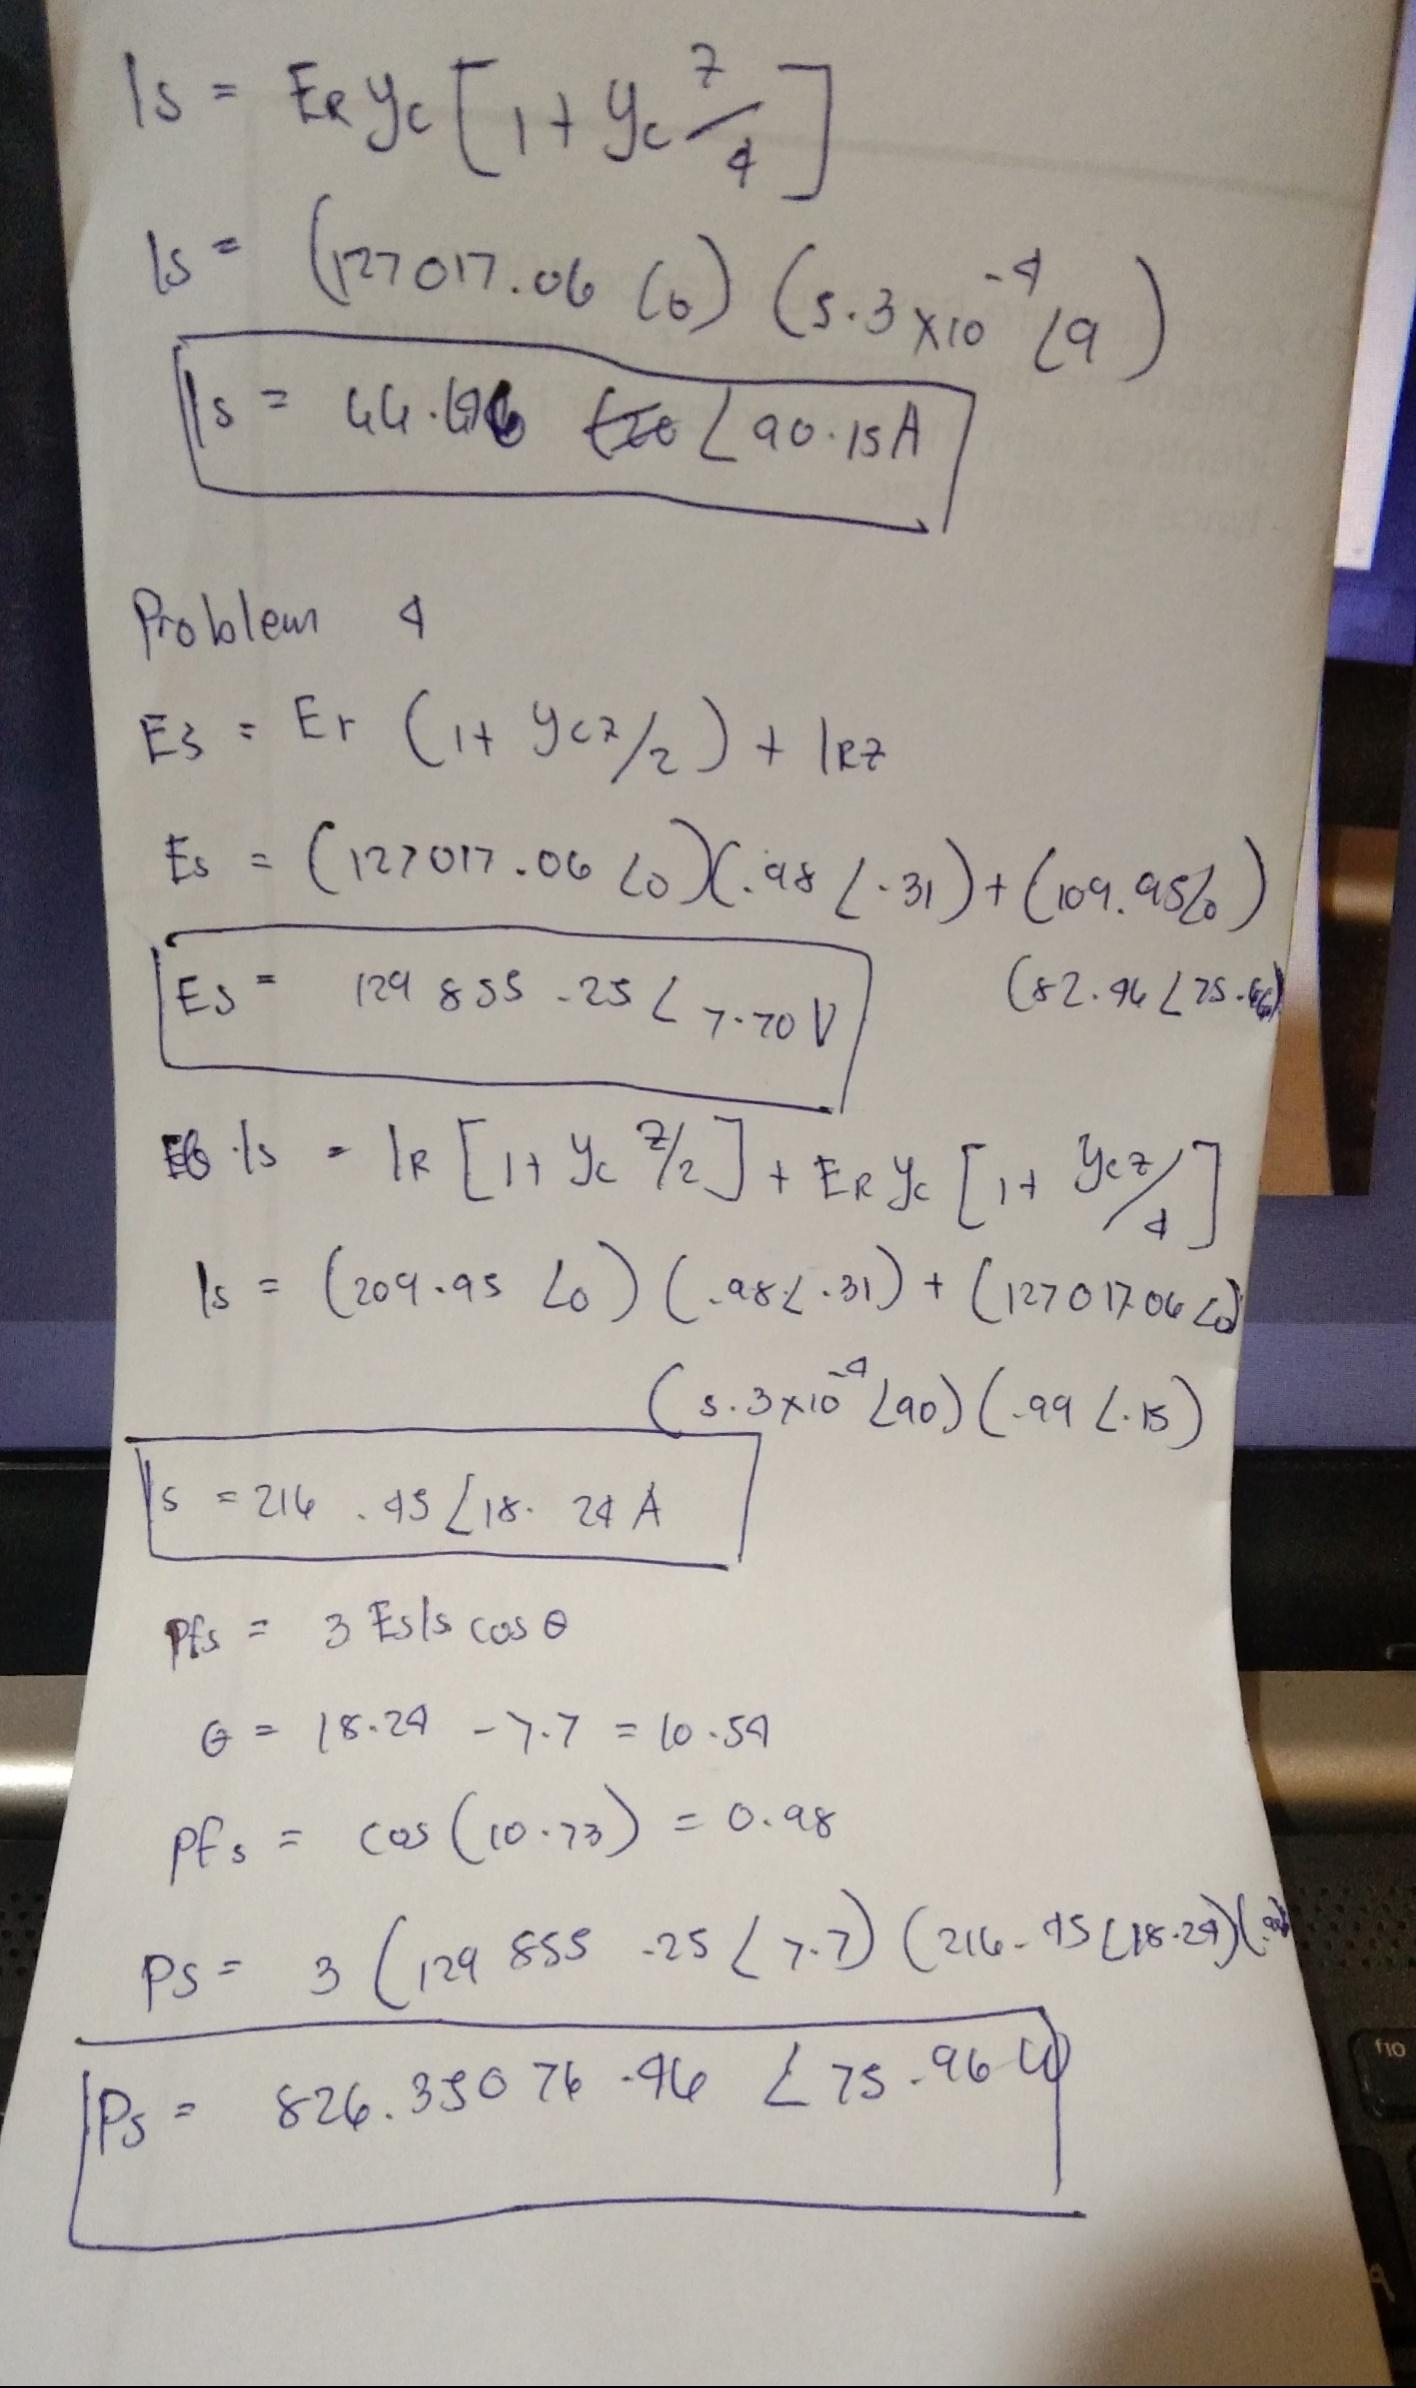 Is = ER Yc [ 1 + Yc Z/4 ]
Is = (127017.06 ∠0) (5.3 x10^-4 ∠9)
Is = ∠90.15 A
Problem 4
Es = Er (1+ YcZ/2) + IRZ
Es = (127017.06 ∠0)(.98 ∠.31) + (109.95∠0)
(82.96 ∠75.
Es = 129 855 .25 ∠ 7.70 V
Is = IR [1+ Yc Z/2] + ER Yc [1+ YcZ/4]
Is = (209.95 ∠0) (.98∠.31) + (127017.06 ∠0)
(5.3x10^-4 ∠90) (.99 ∠.15)
Is = 216 .45 ∠18. 24 A
Pfs = 3 EsIs cos θ
θ = 18.24 - 7.7 = 10.54
Pfs = cos (10.73) = 0.98
Ps = 3 (129 855 .25 ∠7.7) (216.45 ∠18.24)(
Ps = 826.35076 .46 ∠ 75.96 W
f10